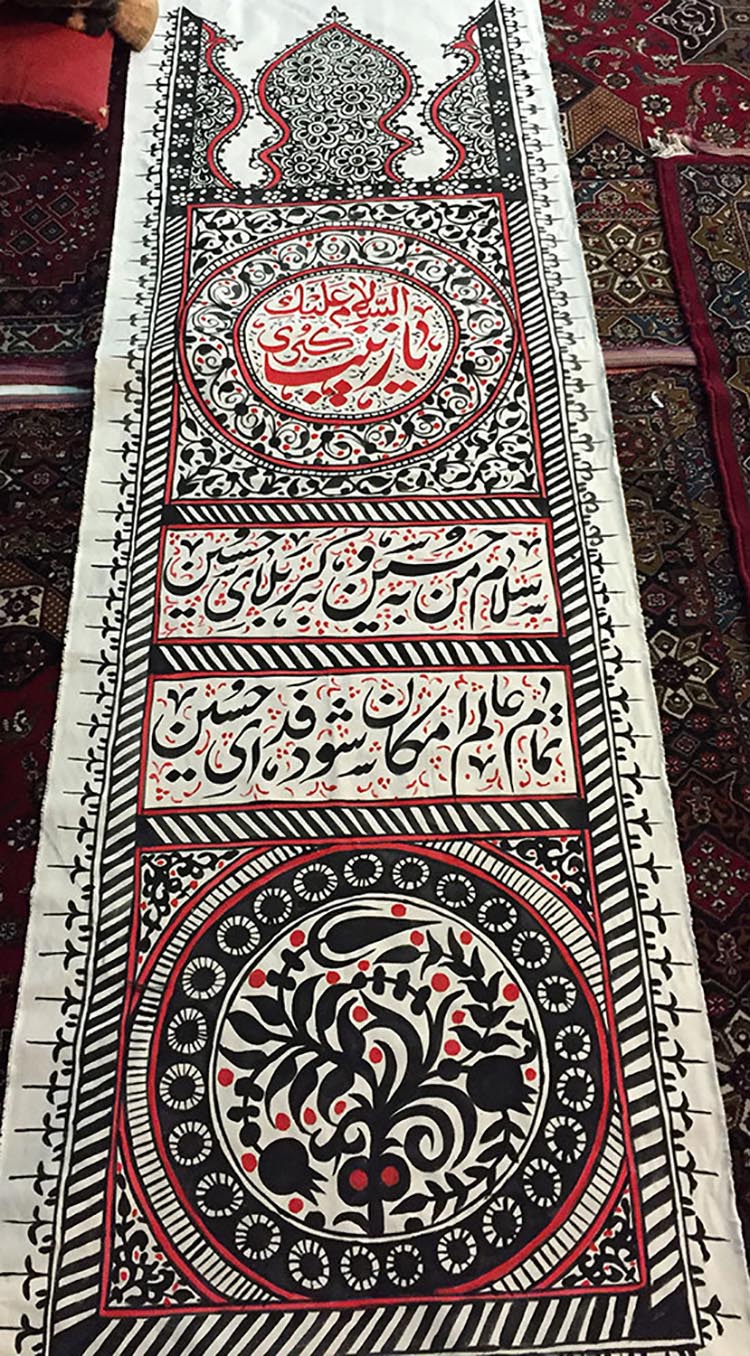 السلام علیک
یا زینب کبری
سلام من به حسین و به کربلای حسین
تمام عالم امکان شود فدای حسین